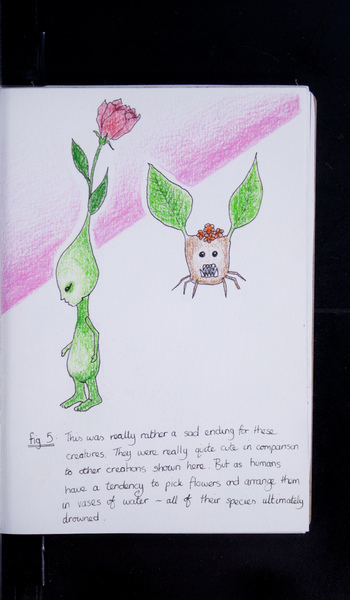 fig 5: This was really rather a sad ending for these
creatures. They were really quite cute in comparison
to other creations shown here. But as humans
have a tendency to pick flowers and arrange them
in vases of water – all of their species ultimately
drowned.